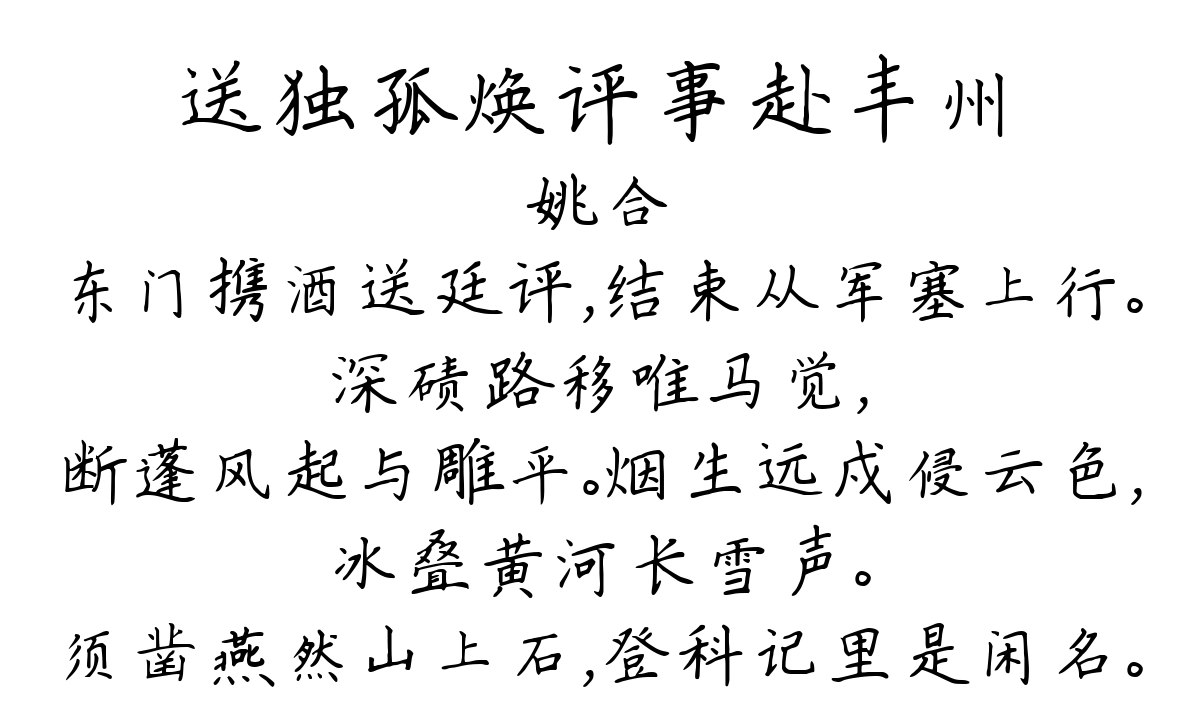 送独孤焕评事赴丰州
姚合
东门携酒送廷评,结束从军塞上行。
深碛路移唯马觉,
断蓬风起与雕平。烟生远戍侵云色,
冰叠黄河长雪声。
须凿燕然山上石,登科记里是闲名。